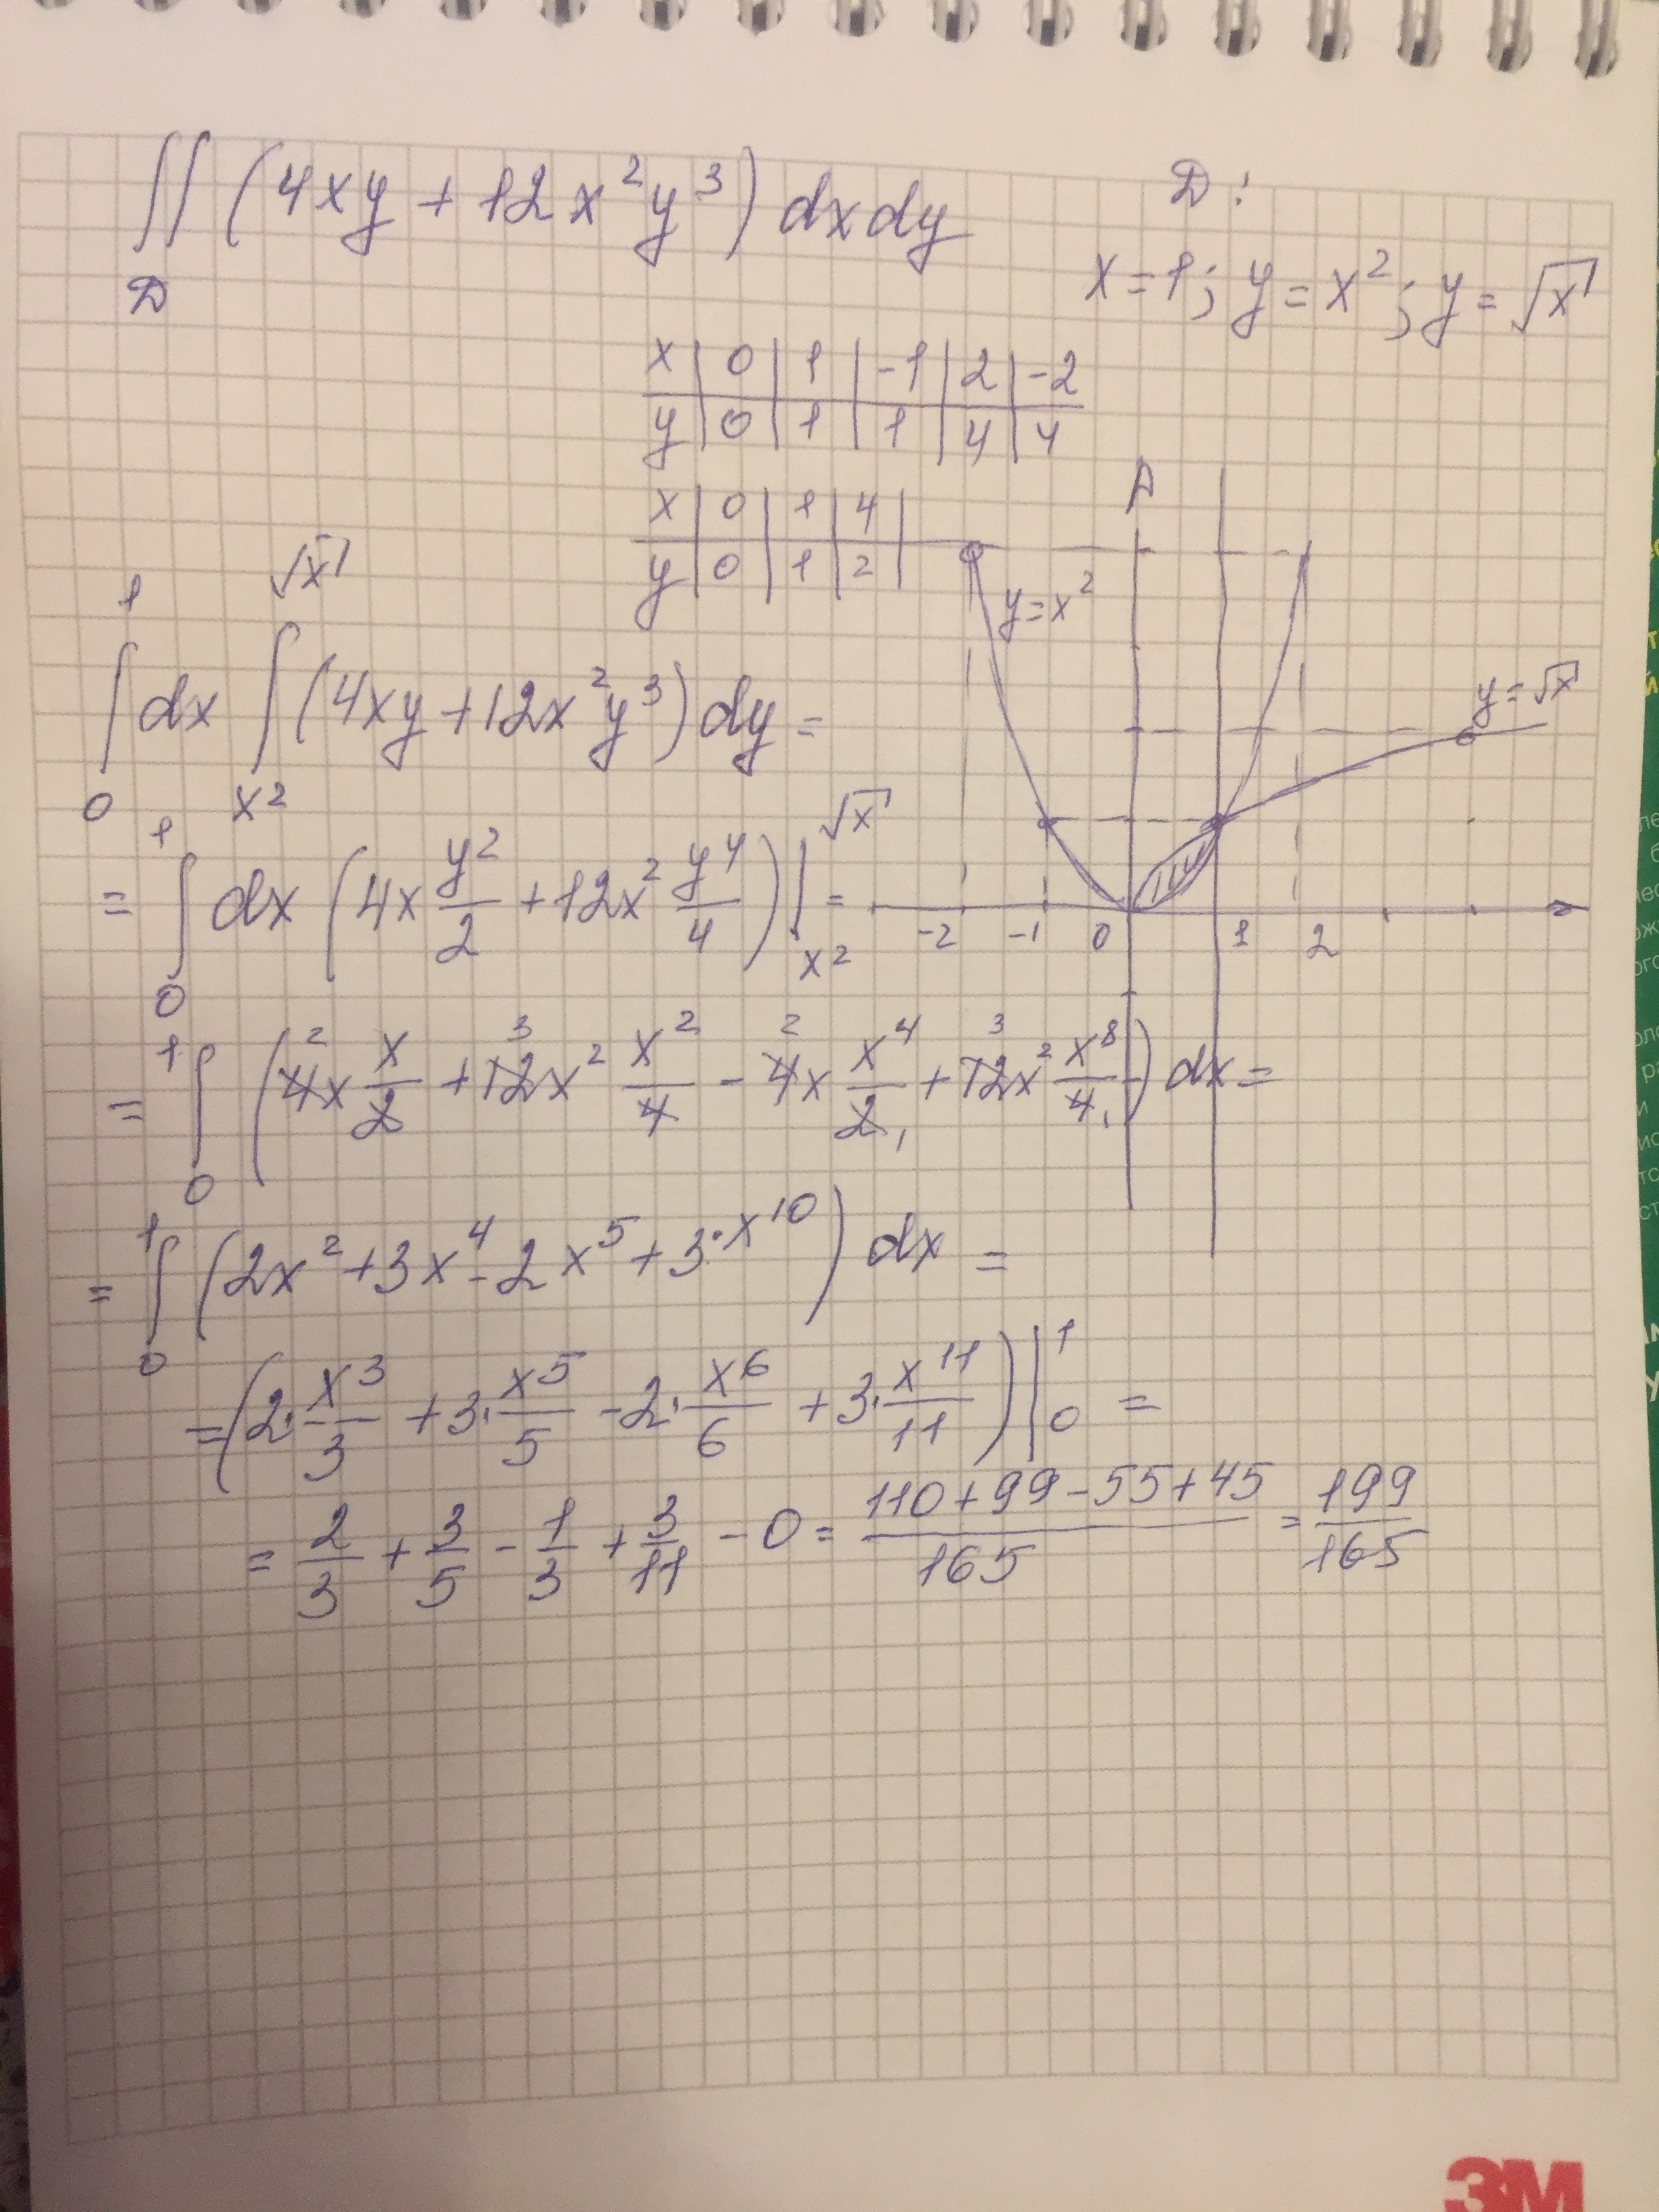 ∬ (4xy + 12x²y³) dxdy
D
D:
x = 1; y = x²; y = √x
x | 0 | 1 | -1 | 2 | -2
y | 0 | 1 | 1 | 4 | 4
x | 0 | 1 | 4 |
y | 0 | 1 | 2 |
y = x²
y = √x
-2 -1 0 1 2
∫₀¹ dx ∫_{x²}^{√x} (4xy + 12x²y³) dy =
= ∫₀¹ dx (4x y²/2 + 12x² y⁴/4) |_{x²}^{√x} =
= ∫₀¹ (4x x/2 + 12x² x²/4 - 4x x⁴/2 + 12x² x⁸/4) dx =
2 3 2 3
1 1
= ∫₀¹ (2x² + 3x⁴ - 2x⁵ + 3·x¹⁰) dx =
= (2·x³/3 + 3·x⁵/5 - 2·x⁶/6 + 3·x¹¹/11) |₀¹ =
= 2/3 + 3/5 - 1/3 + 3/11 - 0 = (110 + 99 - 55 + 45)/165 = 199/165
3M